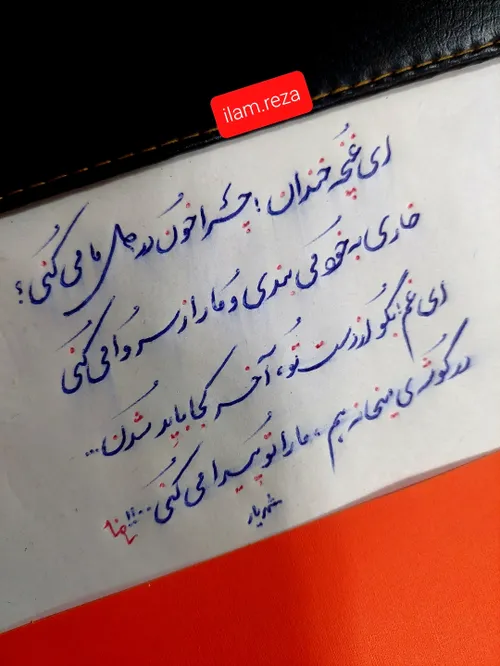 ilam.reza
ای غُنچه خندان ؛ چرا خون در دل ما می کُنی ؟
خاری به خود می بندی و ما را از سر وا می کُنی
ای غم ؛ بگو از دست تُو ، آخر کجا باید شُدن ...
در گوشه ی میخانه هم ، ما را تو پیدا می کُنی ...!!
شهریار